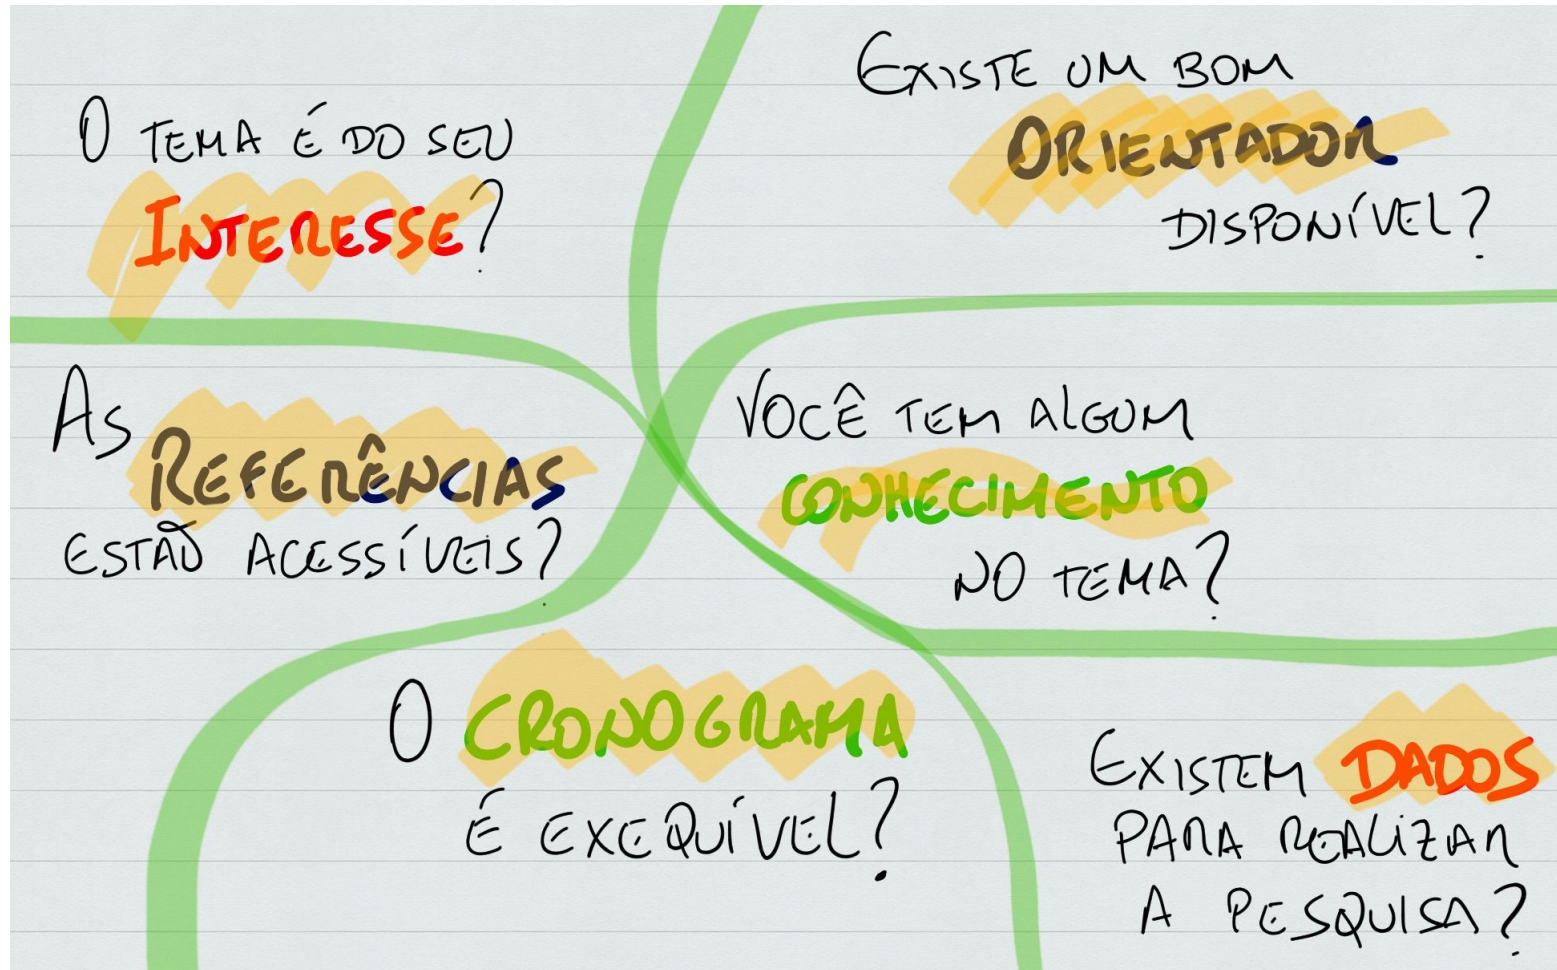 O TEMA É DO SEU
INTERESSE?
EXISTE UM BOM
ORIENTADOR
DISPONÍVEL?
AS REFERÊNCIAS
ESTÃO ACESSÍVEIS?
VOCÊ TEM ALGUM
CONHECIMENTO
NO TEMA?
O CRONOGRAMA
É EXEQUÍVEL?
EXISTEM DADOS
PARA REALIZAR
A PESQUISA?